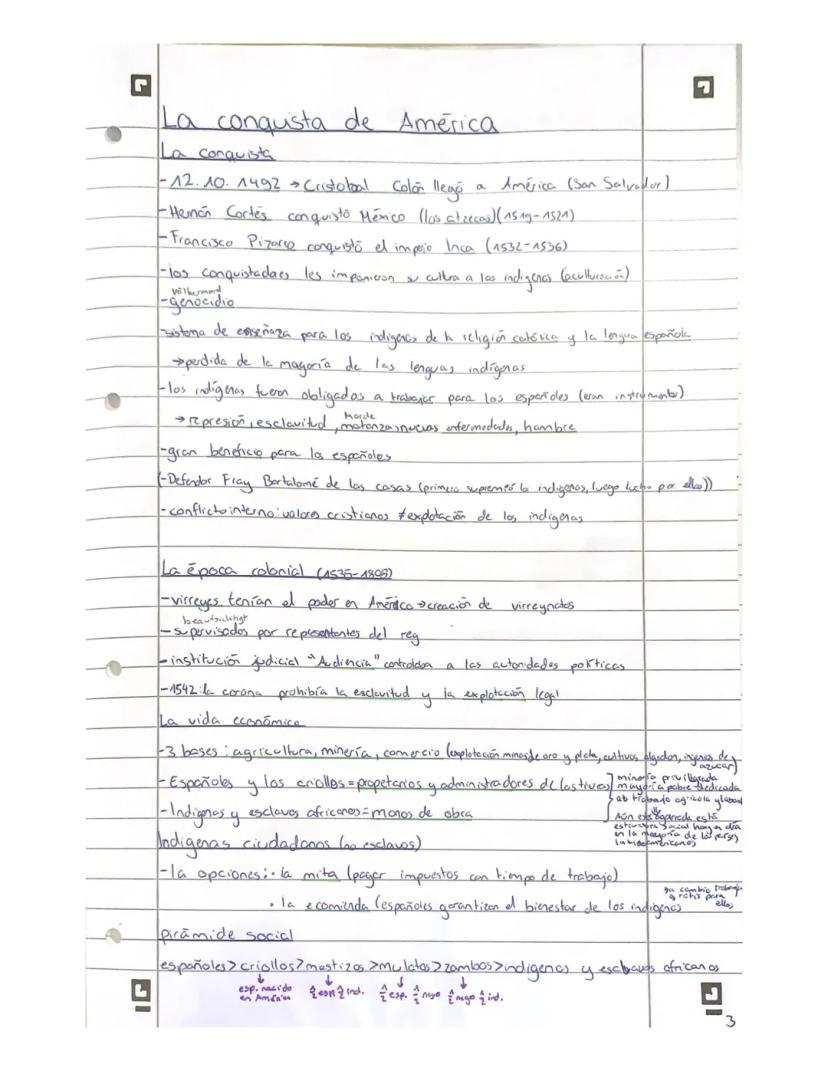 La conquista de América
La conquista
-12.10.1492 → Cristobal Colón llegó a América (San Salvador)
-Hernán Cortés conquistó México (los aztecas)(1519-1521)
-Francisco Pizarro conquistó el imperio Inca (1532-1536)
-los conquistadores les impusieron su cultura a los indígenas (aculturación)
Völkermord
-genocidio
-sistema de enseñaza para los indígenas de la religión católica y la lengua española
→perdida de la mayoría de las lenguas indígenas
-los indígenas fueron obligados a trabajar para los españoles (eran instrumento)
Morde
→represión, esclavitud, matanzas, nuevas enfermedades, hambre
-gran beneficio para los españoles
(-Defendor Fray Bartolomé de las casas (primero los indígenas, luego lucho por ellos))
-conflicto interno: valores cristianos ≠ explotación de los indígenas
La época colonial (1535-1808)
-virreyes tenían el poder en América → creación de virreynatos
beaufsichtigt
-supervisados por representantes del rey
-institución judicial "Audiencia" controlaba a las autoridades políticas
-1542: la corona prohibía la esclavitud y la explotación legal
La vida económica
-3 bases: agricultura, minería, comercio (explotación minas de oro y plata, cultivos algodon, ingenios de azucar)
-Españoles y los criollos = propetarios y administradores de las tierras
minoría priviligiada
mayoría pobre dedicada
al trabajo agrícola y labor
-Indígenas y esclavos africanos = manos de obra
Aún está
estructura social hoy en día
en la mayoría de los países
latinoamericanos
Indígenas ciudadanos (no esclavos)
-la opciones: · la mita (pagar impuestos con tiempo de trabajo)
· la ecomienda (españoles garantizan el bienestar de los indígenas
a cambio trabajo
gratis para
ellos
pirámide social
españoles > criollos > mestizos > mulatos > zambos > indígenas y esclavos africanos
esp. nacido
en América
½ esp ½ ind. ½ esp. ½ negro ½ negro ½ ind.
3